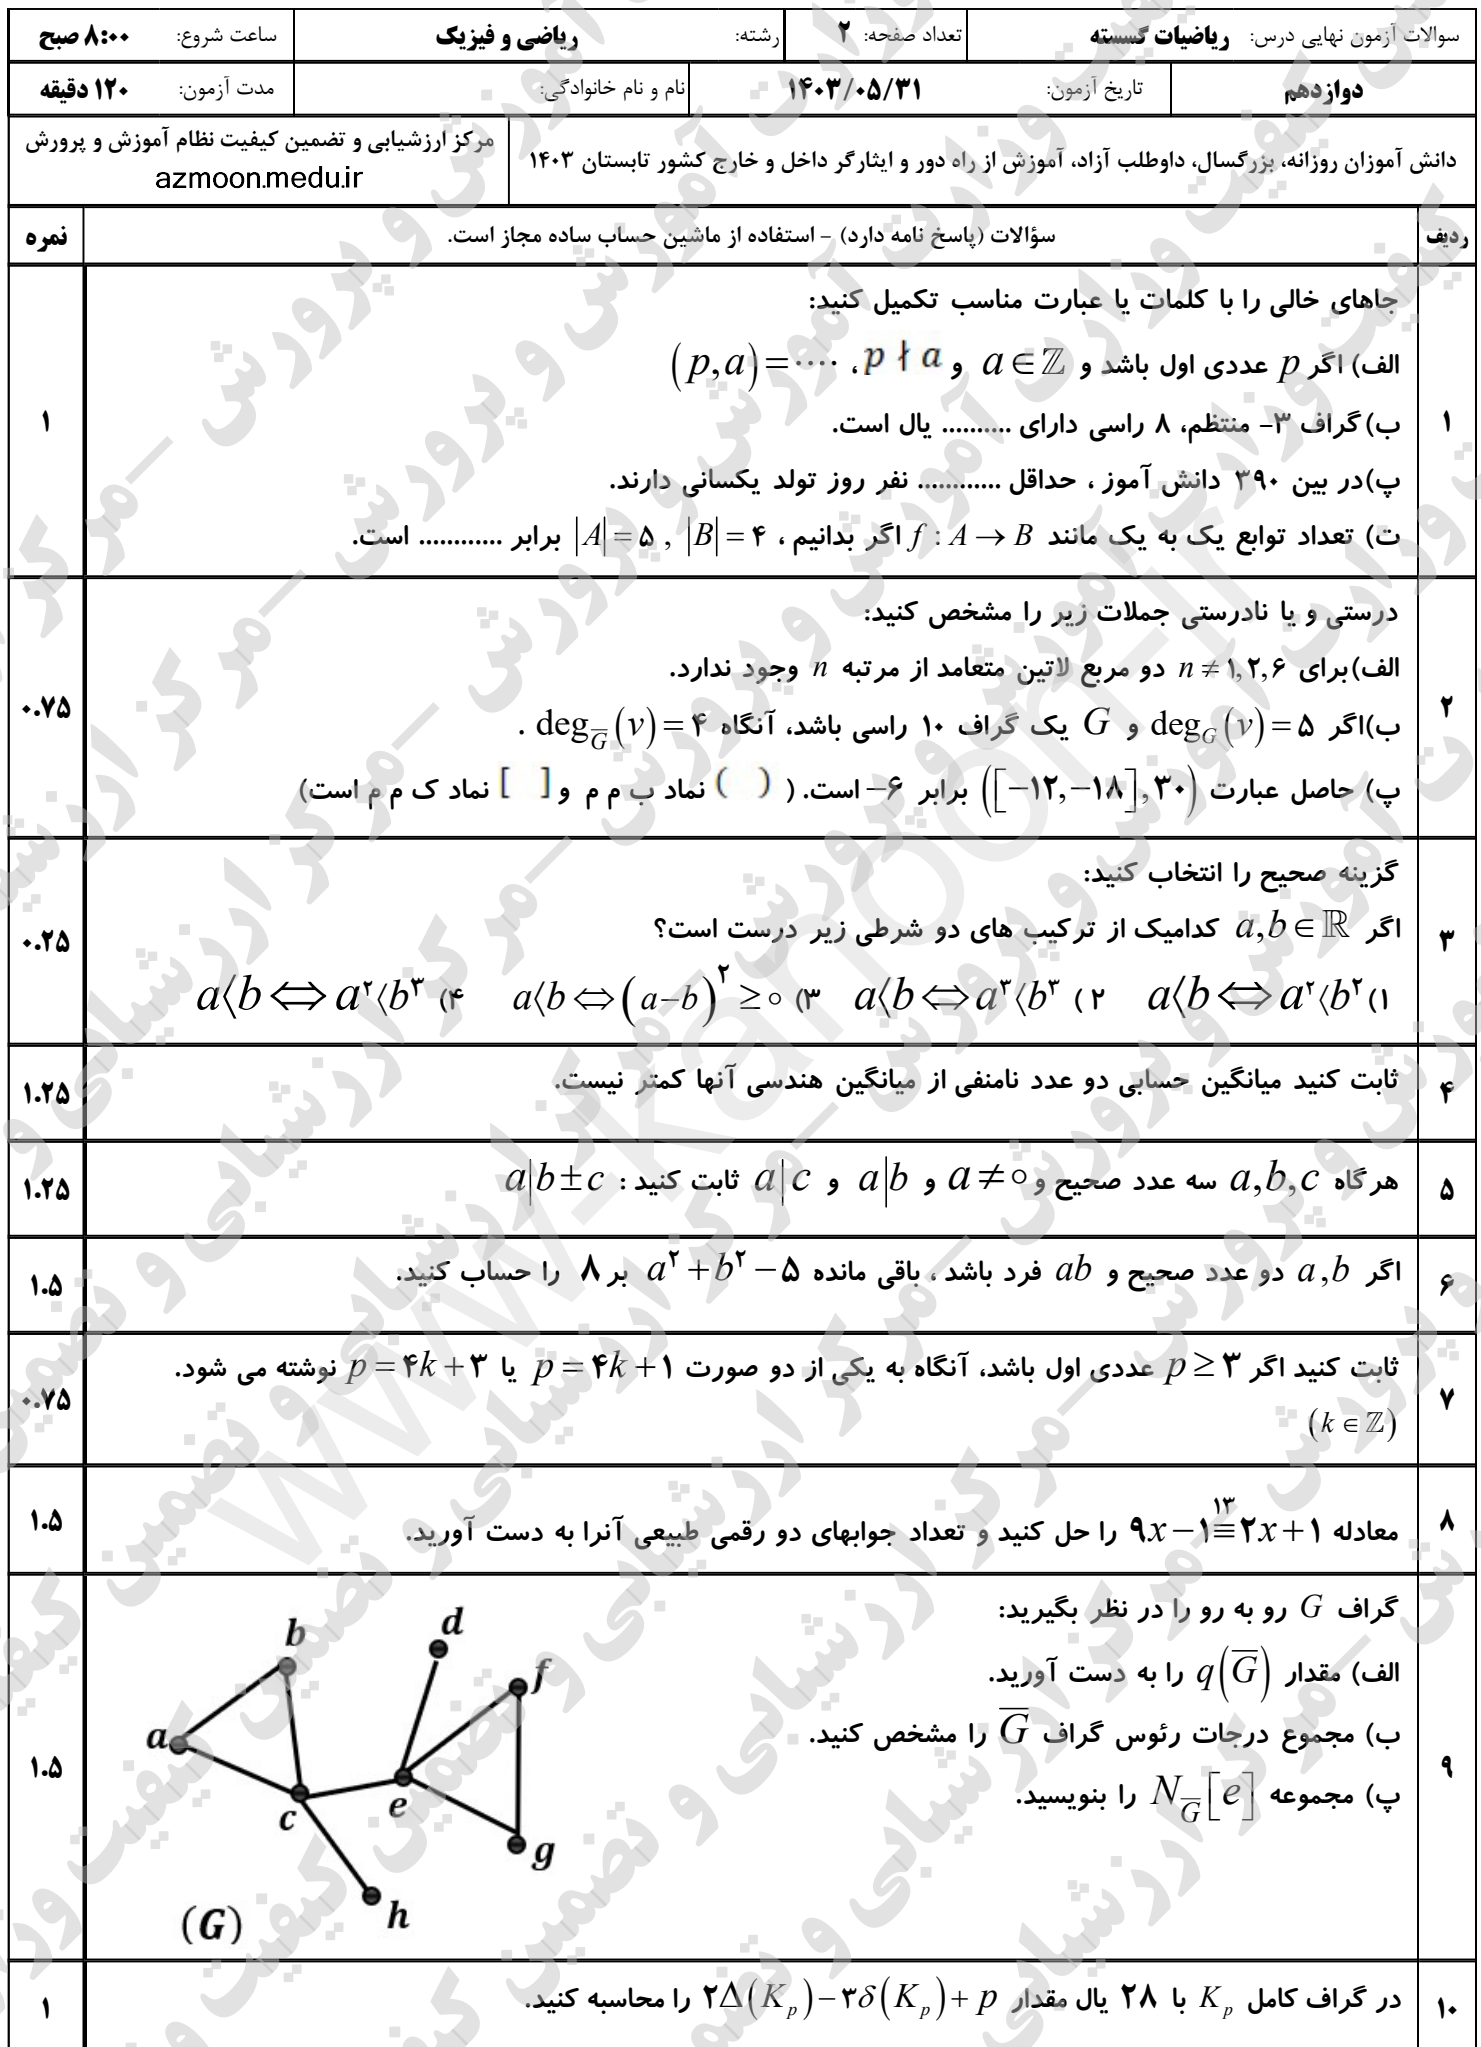 سوالات آزمون نهایی درس: ریاضیات گسسته تعداد صفحه: ۲ رشته: ریاضی و فیزیک ساعت شروع: ۸:۰۰ صبح
دوازدهم تاریخ آزمون: ۱۴۰۳/۰۵/۳۱ نام و نام خانوادگی: مدت آزمون: ۱۲۰ دقیقه
دانش آموزان روزانه، بزرگسال، داوطلب آزاد، آموزش از راه دور و ایثارگر داخل و خارج کشور تابستان ۱۴۰۳ مرکز ارزشیابی و تضمین کیفیت نظام آموزش و پرورش
azmoon.medu.ir
ردیف سؤالات (پاسخ نامه دارد) - استفاده از ماشین حساب ساده مجاز است. نمره
۱ جاهای خالی را با کلمات یا عبارت مناسب تکمیل کنید: ۱
الف) اگر p عددی اول باشد و a ∈ ℤ و p ∤ a ، (p,a) = ····
ب) گراف ۳- منتظم، ۸ راسی دارای .......... یال است.
پ)در بین ۳۹۰ دانش آموز ، حداقل ............ نفر روز تولد یکسانی دارند.
ت) تعداد توابع یک به یک مانند f : A → B اگر بدانیم ، |A| = ۵ , |B| = ۴ برابر ............ است.
۲ درستی و یا نادرستی جملات زیر را مشخص کنید: ۰.۷۵
الف)برای n ≠ ۱,۲,۶ دو مربع لاتین متعامد از مرتبه n وجود ندارد.
ب)اگر deg_G(v) = ۵ و G یک گراف ۱۰ راسی باشد، آنگاه deg_G̅(v) = ۴ .
پ) حاصل عبارت ([−۱۲,−۱۸],۳۰) برابر ۶− است. ( ( ) نماد ب م م و [ ] نماد ک م م است)
۳ گزینه صحیح را انتخاب کنید: ۰.۲۵
اگر a,b ∈ ℝ کدامیک از ترکیب های دو شرطی زیر درست است؟
۱) a⟨b ⇔ a²⟨b² ۲) a⟨b ⇔ a³⟨b³ ۳) a⟨b ⇔ (a−b)² ≥ ۰ ۴) a⟨b ⇔ a²⟨b³
۴ ثابت کنید میانگین حسابی دو عدد نامنفی از میانگین هندسی آنها کمتر نیست. ۱.۲۵
۵ هر گاه a,b,c سه عدد صحیح و a ≠ ۰ و a|b و a|c ثابت کنید : a|b ± c ۱.۲۵
۶ اگر a,b دو عدد صحیح و ab فرد باشد ، باقی مانده a² + b² − ۵ بر ۸ را حساب کنید. ۱.۵
۷ ثابت کنید اگر p ≥ ۳ عددی اول باشد، آنگاه به یکی از دو صورت p = ۴k + ۱ یا p = ۴k + ۳ نوشته می شود. ۰.۷۵
(k ∈ ℤ)
۸ معادله ۹x − ۱ ≡^۱۳ ۲x + ۱ را حل کنید و تعداد جوابهای دو رقمی طبیعی آنرا به دست آورید. ۱.۵
۹ گراف G رو به رو را در نظر بگیرید: ۱.۵
الف) مقدار q(G̅) را به دست آورید.
ب) مجموع درجات رئوس گراف G̅ را مشخص کنید.
پ) مجموعه N_G̅[e] را بنویسید.
a b c d e f g h
(G)
۱۰ در گراف کامل K_p با ۲۸ یال مقدار ۲Δ(K_p) − ۳δ(K_p) + p را محاسبه کنید. ۱